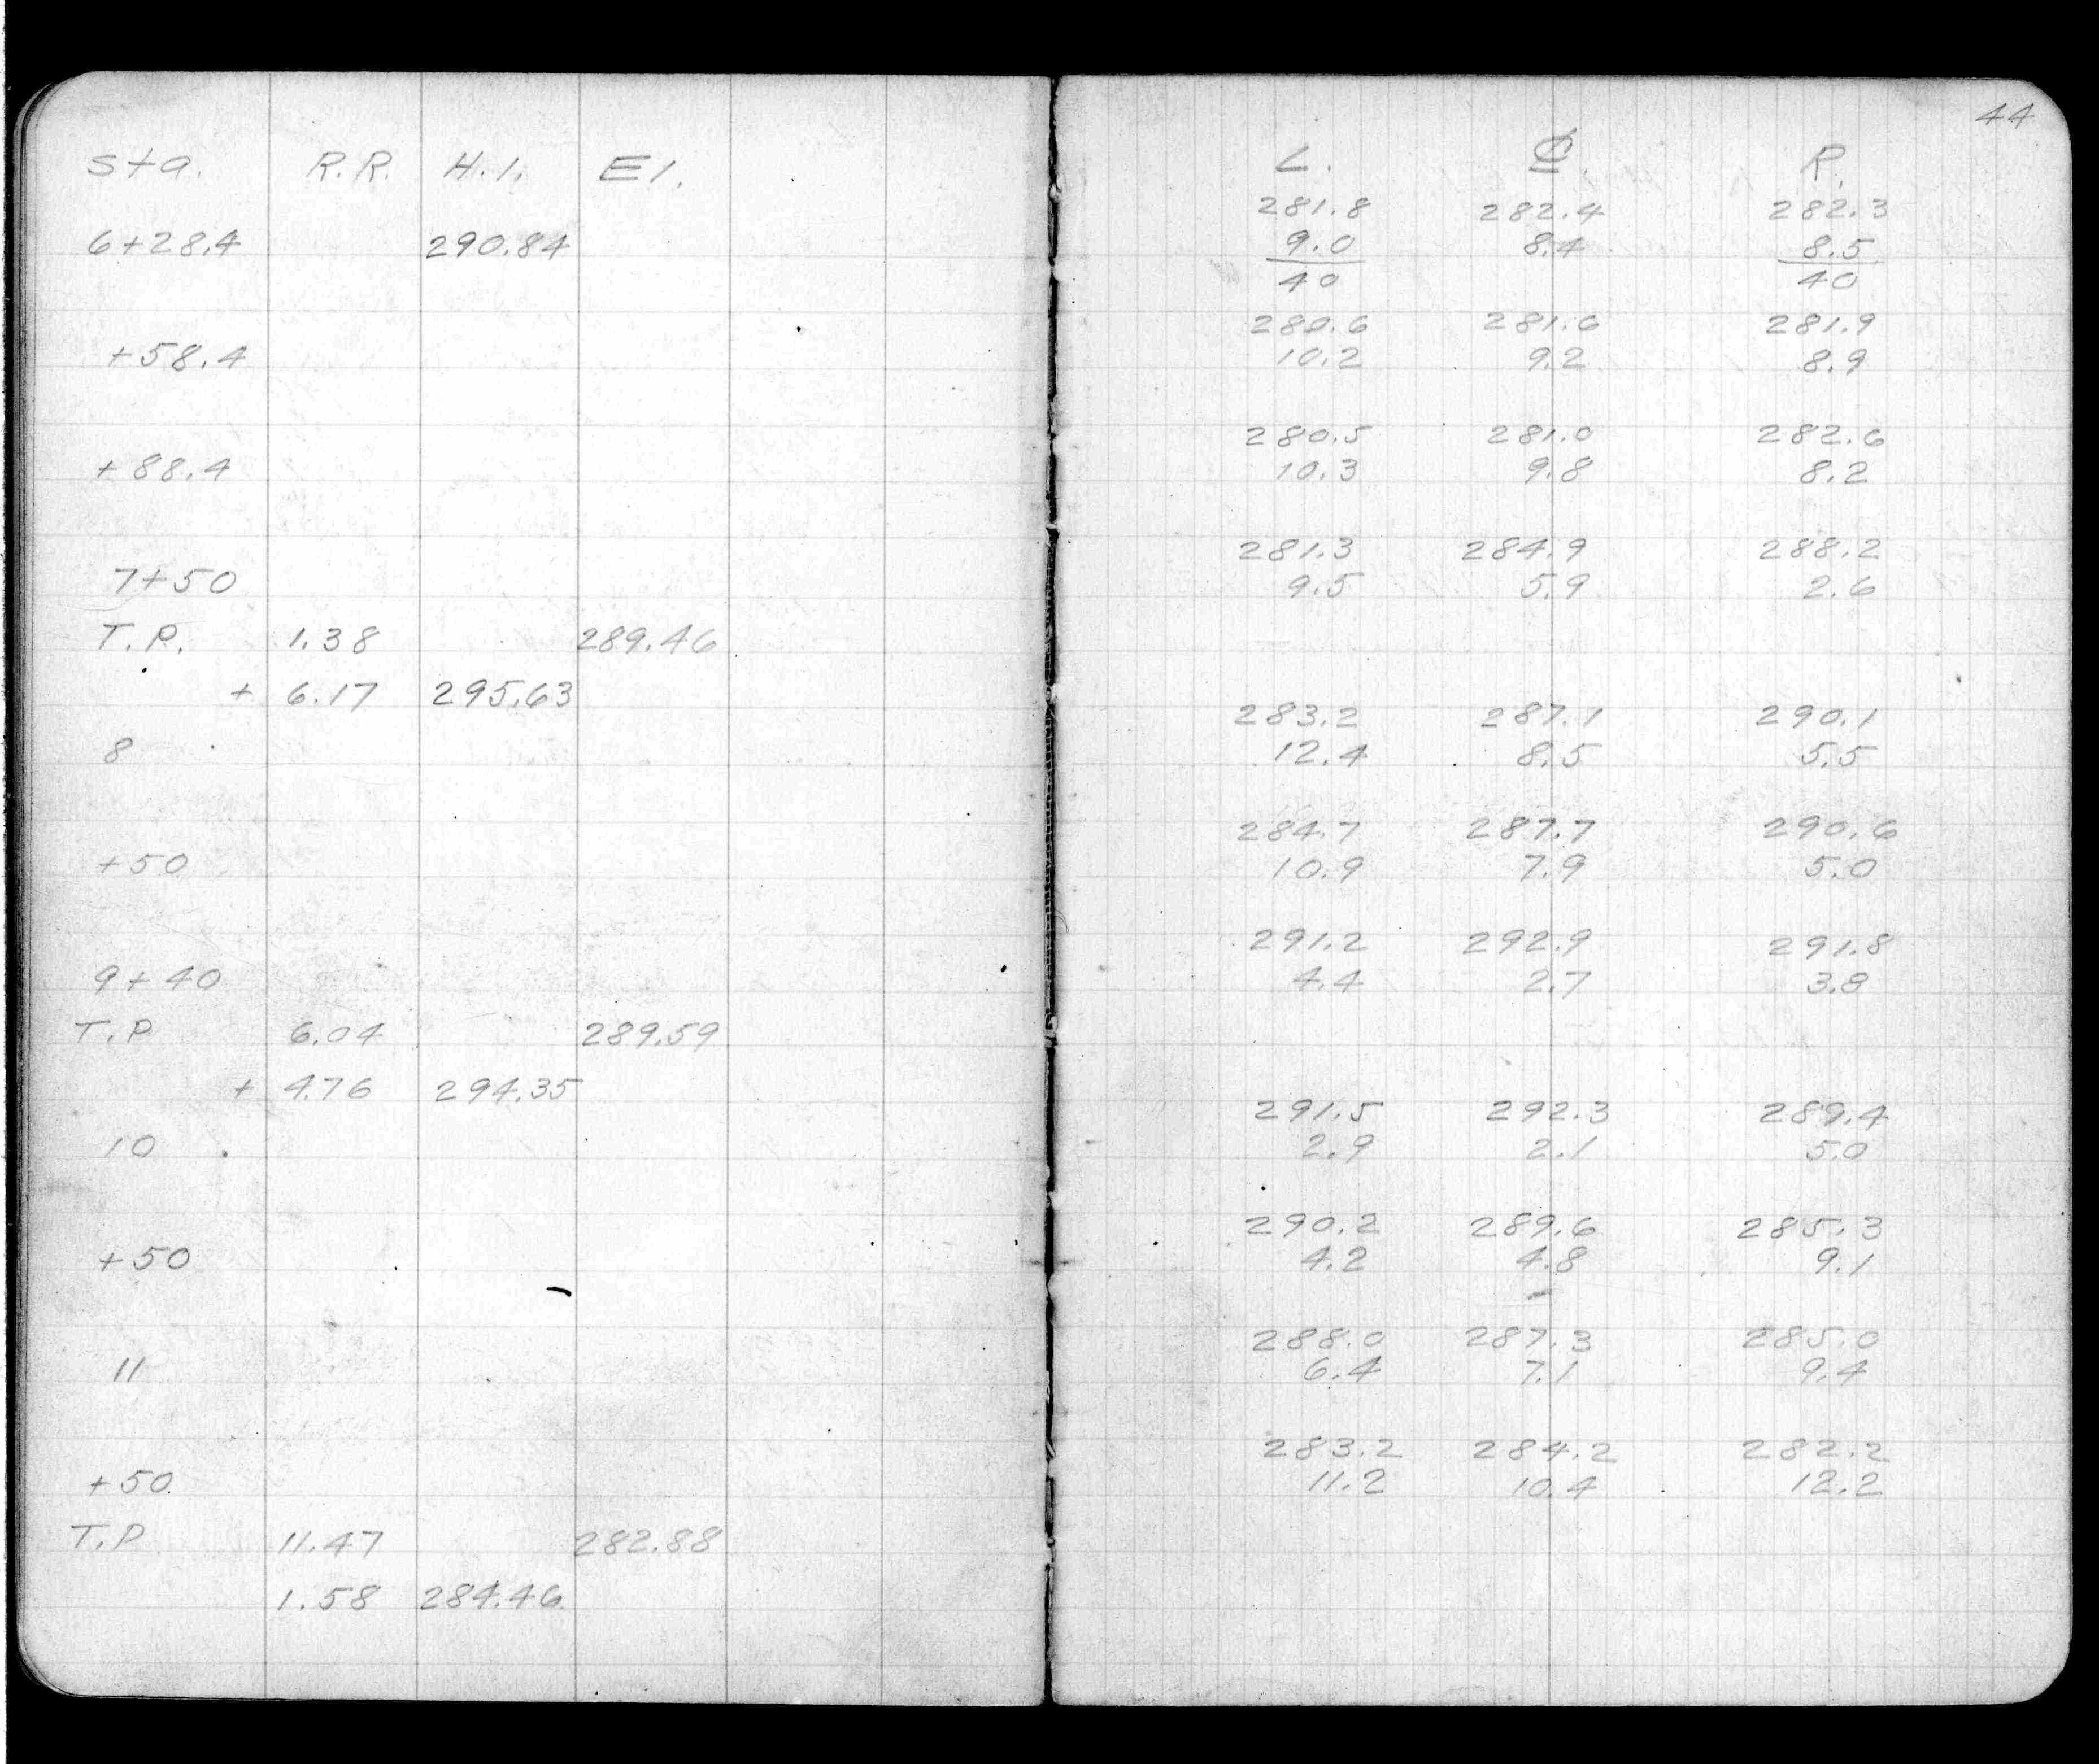 44
Sta. R.R. H.I. El. L. ℄. R.
281.8 282.4 282.3
6+28.4 290.84 9.0 8.4 8.5
40 40
280.6 281.6 281.9
+58.4 10.2 9.2 8.9
280.5 281.0 282.6
+88.4 10.3 9.8 8.2
281.3 284.9 288.2
7+50 9.5 5.9 2.6
T.P. 1.38 289.46
+ 6.17 295.63
283.2 287.1 290.1
8 12.4 8.5 5.5
284.7 287.7 290.6
+50 10.9 7.9 5.0
291.2 292.9 291.8
9+40 4.4 2.7 3.8
T.P 6.04 289.59
+ 4.76 294.35
291.5 292.3 289.4
10 2.9 2.1 5.0
290.2 289.6 285.3
+50 4.2 4.8 9.1
288.0 287.3 285.0
11 6.4 7.1 9.4
283.2 284.2 282.2
+50 11.2 10.4 12.2
T.P 11.47 282.88
1.58 284.46